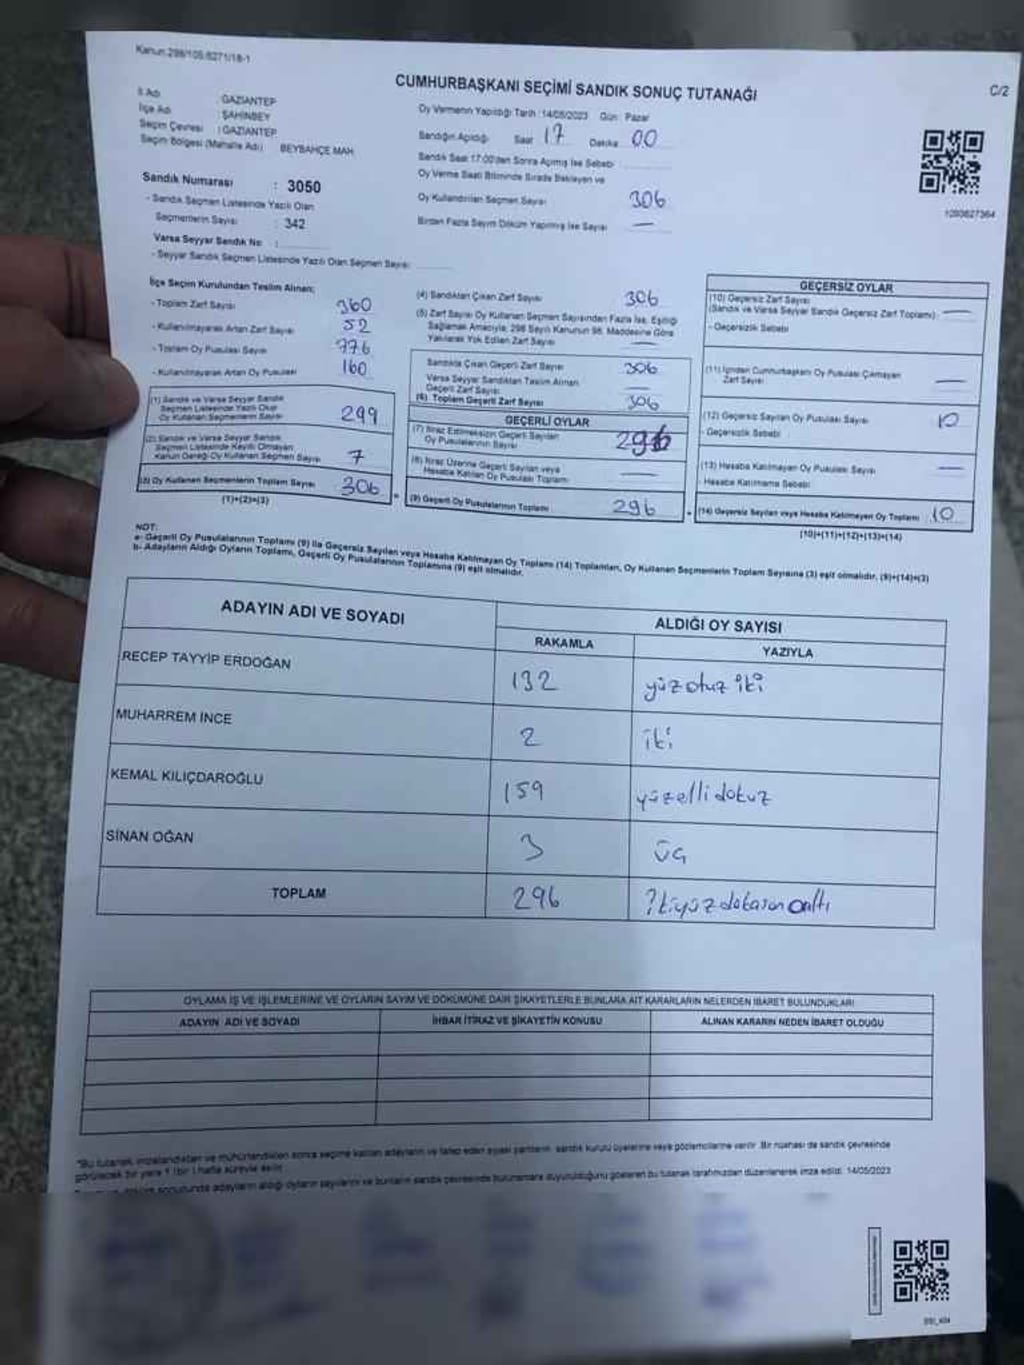 Kanun:298/105;6271/18-1
CUMHURBAŞKANI SEÇİMİ SANDIK SONUÇ TUTANAĞI
C/2
İl Adı : GAZİANTEP
İlçe Adı : ŞAHİNBEY
Seçim Çevresi : GAZİANTEP
Seçim Bölgesi (Mahalle Adı) BEYBAHÇE MAH.
Oy Vermenin Yapıldığı Tarih :14/05/2023 Gün: Pazar
Sandığın Açıldığı Saat 17 Dakika 00
Sandık Saat 17:00'den Sonra Açılmış İse Sebebi
Oy Verme Saati Bitiminde Sırada Bekleyen ve
Oy Kullandırılan Seçmen Sayısı 306
Birden Fazla Sayım Döküm Yapılmış İse Sayısı —
1093627364
Sandık Numarası : 3050
- Sandık Seçmen Listesinde Yazılı Olan
Seçmenlerin Sayısı : 342
Varsa Seyyar Sandık No :
- Seyyar Sandık Seçmen Listesinde Yazılı Olan Seçmen Sayısı
İlçe Seçim Kurulundan Teslim Alınan;
- Toplam Zarf Sayısı 360
- Kullanılmayarak Artan Zarf Sayısı 52
- Toplam Oy Pusulası Sayısı 776
- Kullanılmayarak Artan Oy Pusulası 160
(1) Sandık ve Varsa Seyyar Sandık
Seçmen Listesinde Yazılı Olup
Oy Kullanan Seçmenlerin Sayısı 299
(2) Sandık ve Varsa Seyyar Sandık
Seçmen Listesinde Kayıtlı Olmayan
Kanun Gereği Oy Kullanan Seçmen Sayısı 7
(3) Oy Kullanan Seçmenlerin Toplam Sayısı 306
(1)+(2)=(3)
(4) Sandıktan Çıkan Zarf Sayısı 306
(5) Zarf Sayısı Oy Kullanan Seçmen Sayısından Fazla İse, Eşitliği
Sağlamak Amacıyla, 298 Sayılı Kanunun 98. Maddesine Göre
Yakılarak Yok Edilen Zarf Sayısı —
Sandıkta Çıkan Geçerli Zarf Sayısı 306
Varsa Seyyar Sandıktan Teslim Alınan
Geçerli Zarf Sayısı —
(6) Toplam Geçerli Zarf Sayısı 306
GEÇERLİ OYLAR
(7) İtiraz Edilmeksizin Geçerli Sayılan
Oy Pusulalarının Sayısı 296
(8) İtiraz Üzerine Geçerli Sayılan veya
Hesaba Katılan Oy Pusulaları Toplamı —
(9) Geçerli Oy Pusulalarının Toplamı 296
GEÇERSİZ OYLAR
(10) Geçersiz Zarf Sayısı
(Sandık ve Varsa Seyyar Sandık Geçersiz Zarf Toplamı) —
- Geçersizlik Sebebi
(11) İçinden Cumhurbaşkanı Oy Pusulası Çıkmayan
Zarf Sayısı —
(12) Geçersiz Sayılan Oy Pusulası Sayısı 10
- Geçersizlik Sebebi:
(13) Hesaba Katılmayan Oy Pusulası Sayısı —
- Hesaba Katılmama Sebebi:
(14) Geçersiz Sayılan veya Hesaba Katılmayan Oy Toplamı 10
(10)+(11)+(12)+(13)=(14)
NOT:
a- Geçerli Oy Pusulalarının Toplamı (9) ile Geçersiz Sayılan veya Hesaba Katılmayan Oy Toplamı (14) Toplamları, Oy Kullanan Seçmenlerin Toplam Sayısına (3) eşit olmalıdır. (9)+(14)=(3)
b- Adayların Aldığı Oyların Toplamı, Geçerli Oy Pusulalarının Toplamına (9) eşit olmalıdır.
ADAYIN ADI VE SOYADI
ALDIĞI OY SAYISI
RAKAMLA YAZIYLA
RECEP TAYYİP ERDOĞAN 132 yüzotuz iki
MUHARREM İNCE 2 iki
KEMAL KILIÇDAROĞLU 159 yüzelli dokuz
SİNAN OĞAN 3 üç
TOPLAM 296 ikiyüz doksan altı
OYLAMA İŞ VE İŞLEMLERİNE VE OYLARIN SAYIM VE DÖKÜMÜNE DAİR ŞİKAYETLERLE BUNLARA AİT KARARLARIN NELERDEN İBARET BULUNDUKLARI
ADAYIN ADI VE SOYADI İHBAR İTİRAZ VE ŞİKAYETİN KONUSU ALINAN KARARIN NEDEN İBARET OLDUĞU
"Bu tutanak, imzalandıktan ve mühürlendikten sonra seçime katılan adayların ve talep eden siyasi partilerin sandık kurulu üyelerine veya gözlemcilerine verilir. Bir nüshası da sandık çevresinde
görülecek bir yere 1 (bir) hafta süreyle asılır.
sonucunda adayların aldığı oyların sayılarını ve bunların sandık çevresinde bulunanlara duyurulduğunu gösteren bu tutanak tarafımızdan düzenlenerek imza edildi. 14/05/2023